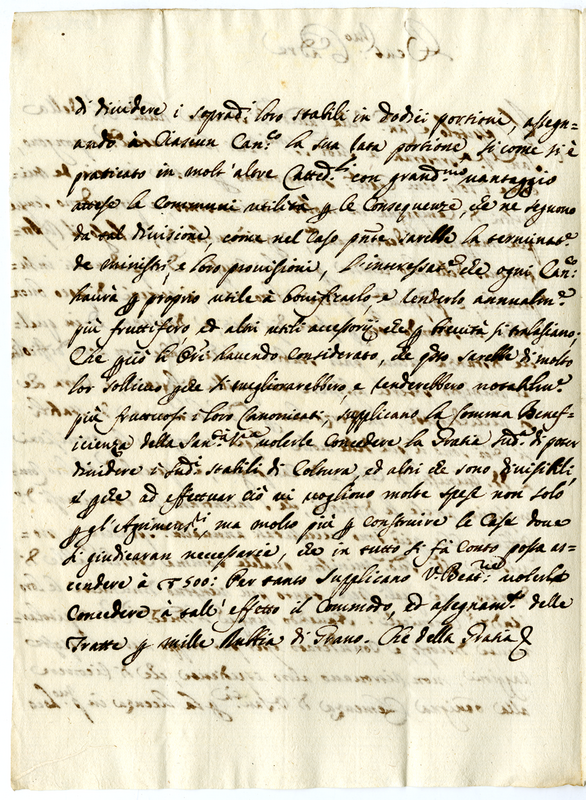 di dividere i soprad.i loro stabili in dodici portione, assegn-
ando à Ciascun Can.co la sua rata portione si come si è
praticato in molt' altre Catted.li con grand.mo vantaggio
attese le Communi utilità p le Consequenze, che ne seguono
da tal divisione, come nel Caso pnte sarebbe la
de ministri, e loro provisioni, L'interessat. che ogni Can.co
haurà p proprio utile à bonificarlo e renderlo annualm.e
più fruttifero ed altri utili accessorij che p brevità si tralasciano;
Che p ciò li Ori havendo considerato, che q.to sarebbe di molto
lor sollievo p che si megliorarebbero, e renderebbero notabilm.e
più fruttuosi i loro Canonicati, supplicano la somma Benef-
icienza della San.tà V.ra volerle Concedere la Gratia sud.a di poter
dividere i sud.i stabili di Coltura, ed altri che sono divisibili,
e p che ad effettuar ciò vi vogliono molte spese non solo
p gl'Agrimens.ri, ma molto più p construire le Case doue
si giudicaran necessarie, che in tutto si fà Conto possa as-
cendere à 500: Per tanto supplicano V. Beat.ne volerle
Concedere à tall' effetto il Commodo, ed assegnam.to delle
Tratte p mille Rubbia di Grano. Che della Gratia